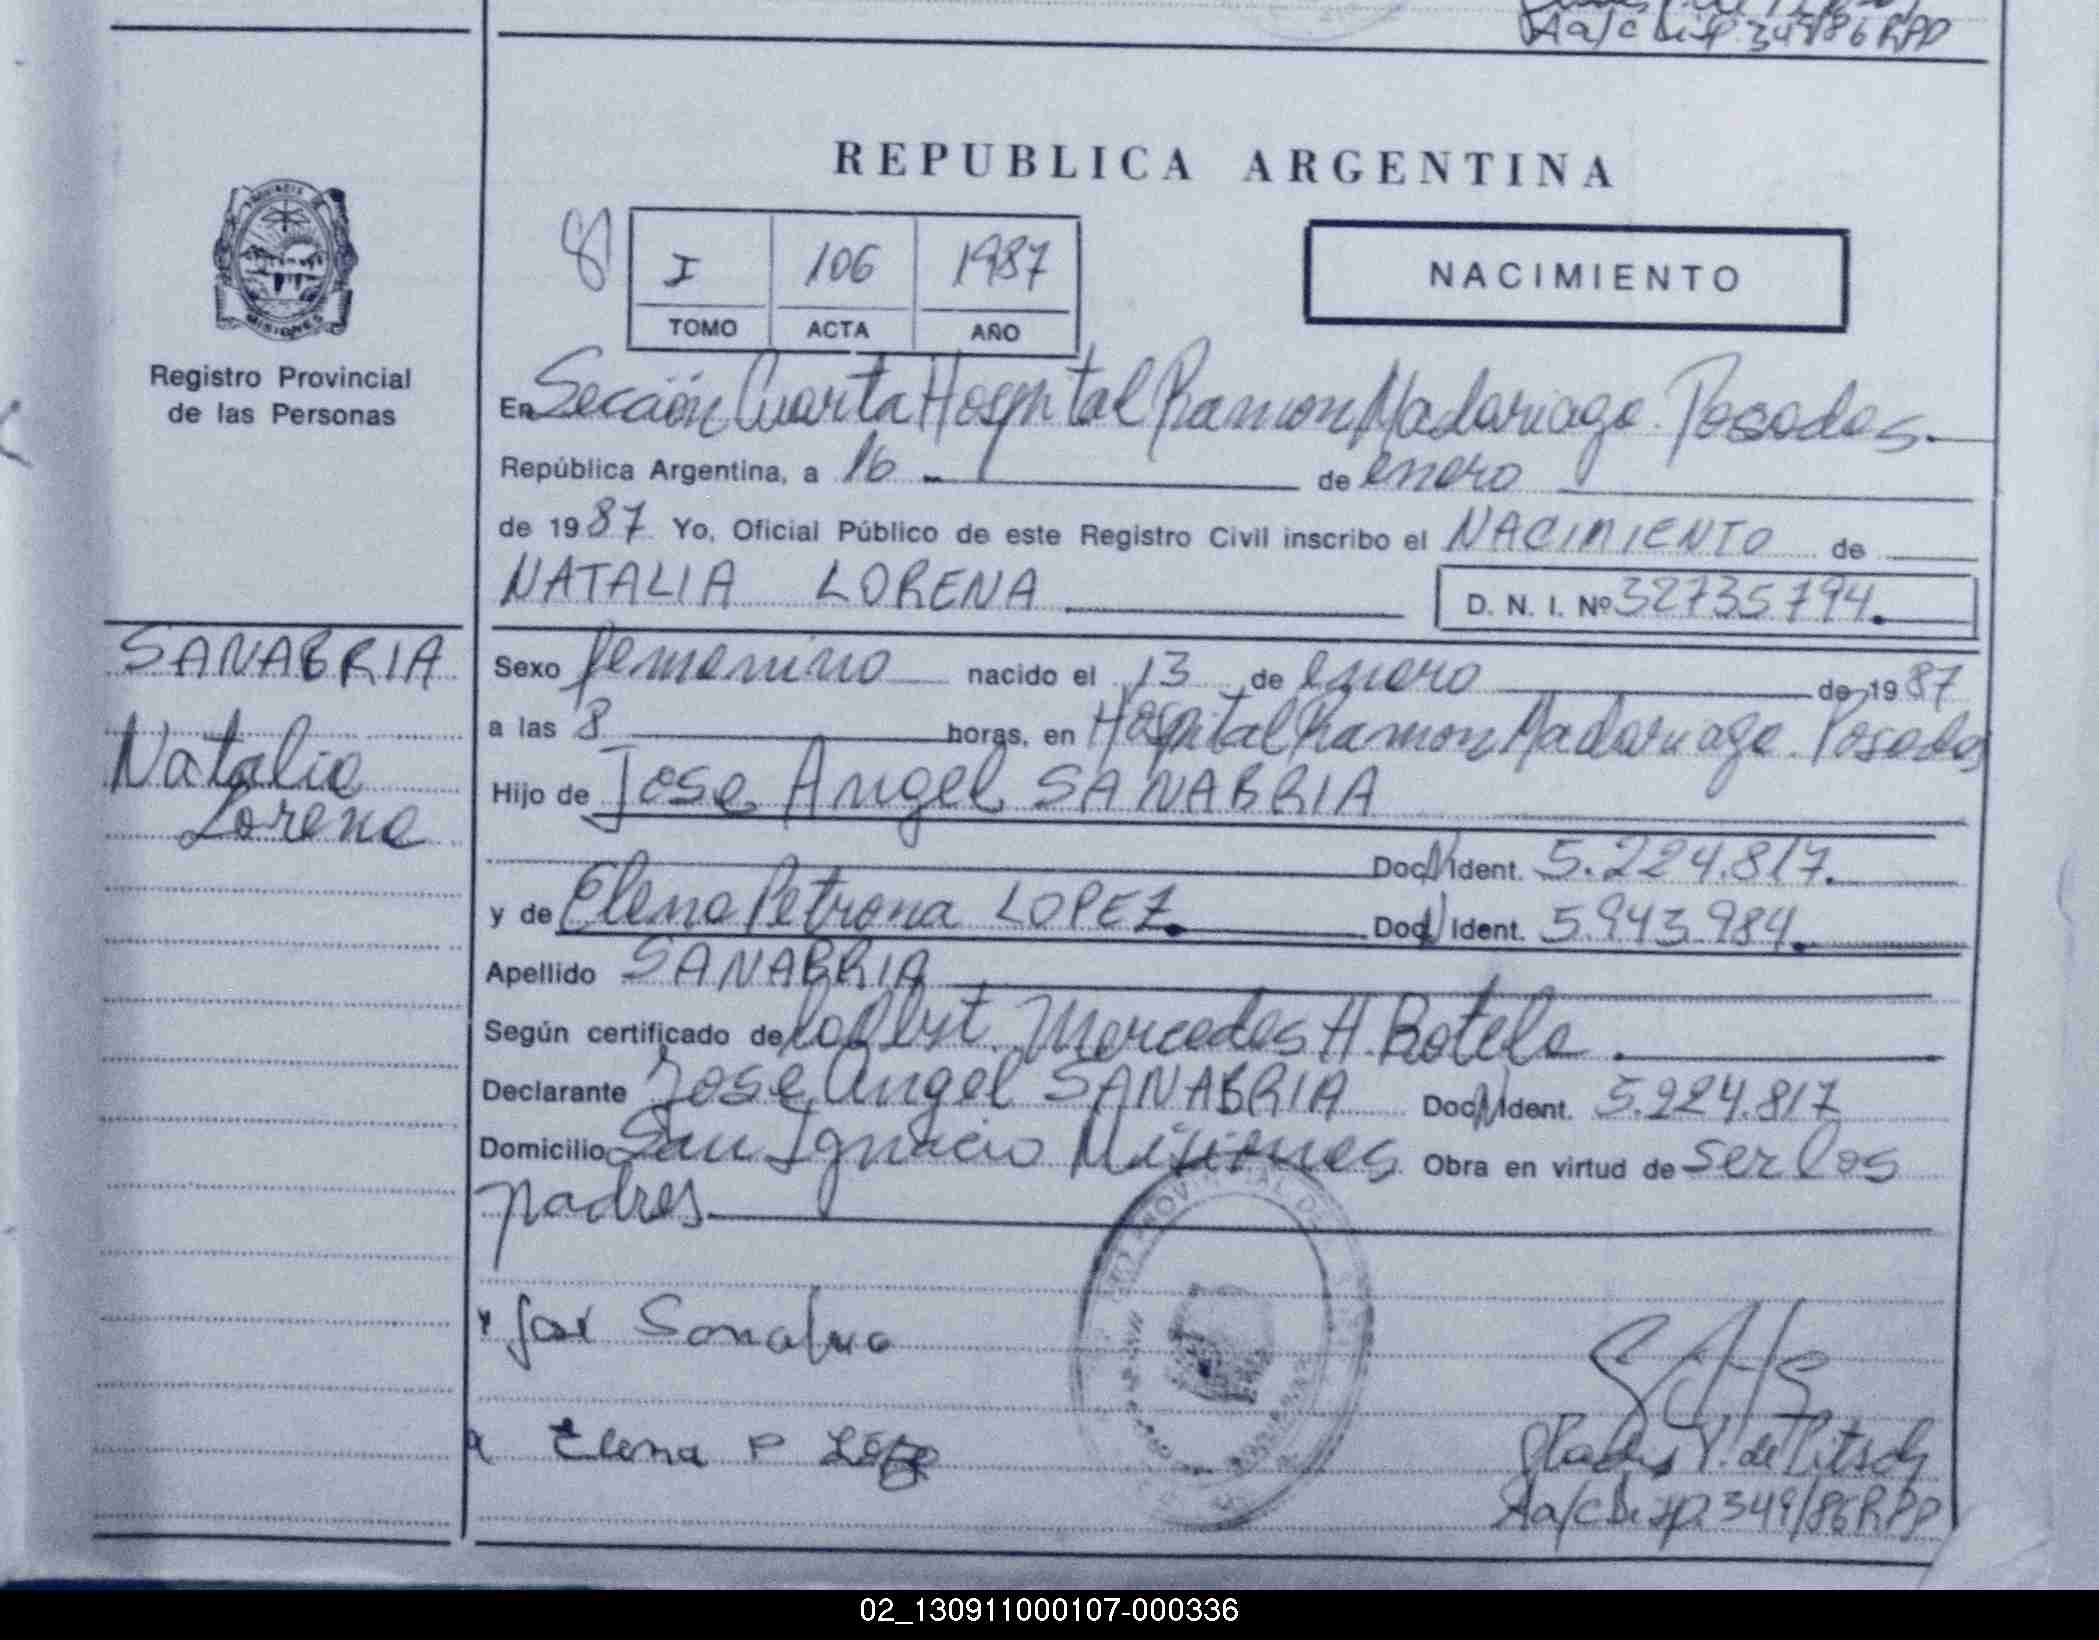 Aa/c Disp. 349/86 RPP
REPUBLICA ARGENTINA
8 I 106 1987
TOMO ACTA AÑO
NACIMIENTO
MISIONES
Registro Provincial
de las Personas
En Sección Cuarta Hospital Ramon Madariaga. Posadas.
República Argentina, a 16 de enero
de 1987 Yo, Oficial Público de este Registro Civil inscribo el NACIMIENTO de
NATALIA LORENA D. N. I. Nº 32735794.
SANABRIA
Natalia
Lorena
Sexo femenino nacido el 13 de enero de 1987
a las 8 horas, en Hospital Ramon Madariaga. Posadas
Hijo de Jose Angel SANABRIA
Doc N Ident. 5.224.817.
y de Elena Petrona LOPEZ. Doc N Ident. 5.943.984.
Apellido SANABRIA
Según certificado de la Obst. Mercedes H. Botelo
Declarante Jose Angel SANABRIA Doc N Ident. 5.224.817
Domicilio San Ignacio Misiones Obra en virtud de ser los
padres
Jose Sanabria
Elena P Lópe
Gladys V. de Pitsch
Aa/c Disp. 349/86 RPP
02_130911000107-000336